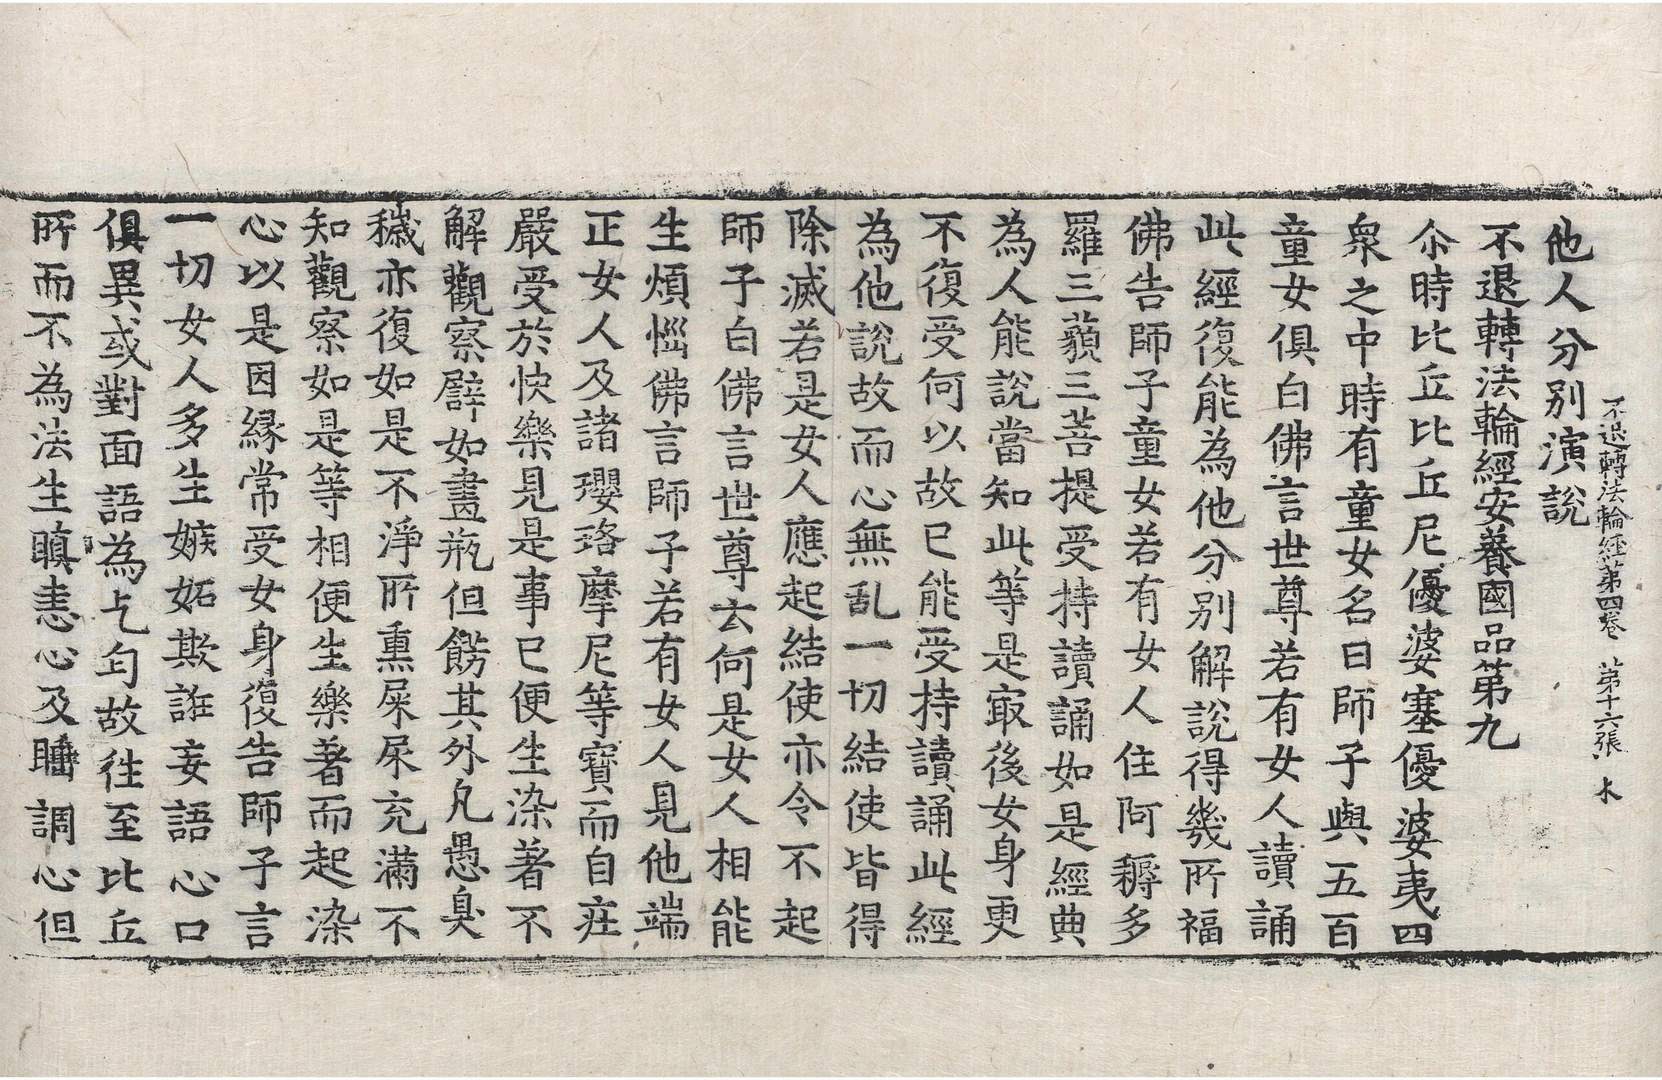 不退轉法輪經第四卷 第十六張 木
他人分別演說
不退轉法輪經安養國品第九
尒時比丘比丘尼優婆塞優婆夷四
衆之中時有童女名曰師子與五百
童女俱白佛言世尊若有女人讀誦
此經復能為他分別解說得幾所福
佛告師子童女若有女人住阿耨多
羅三藐三菩提受持讀誦如是經典
為人能說當知此等是㝡後女身更
不復受何以故已能受持讀誦此經
為他說故而心無乱一切結使皆得
除滅若是女人應起結使亦令不起
師子白佛言世尊云何是女人相能
生煩惱佛言師子若有女人見他端
正女人及諸瓔珞摩尼等寶而自㽵
嚴受於快樂見是事已便生染著不
解觀察譬如畫瓶但餝其外凡愚臭
穢亦復如是不淨所熏屎尿充滿不
知觀察如是等相便生樂著而起染
心以是因緣常受女身復告師子言
一切女人多生嫉妬欺誑妄語心口
俱異或對面語為乞匄故往至比丘
所而不為法生瞋恚心及睡調心但